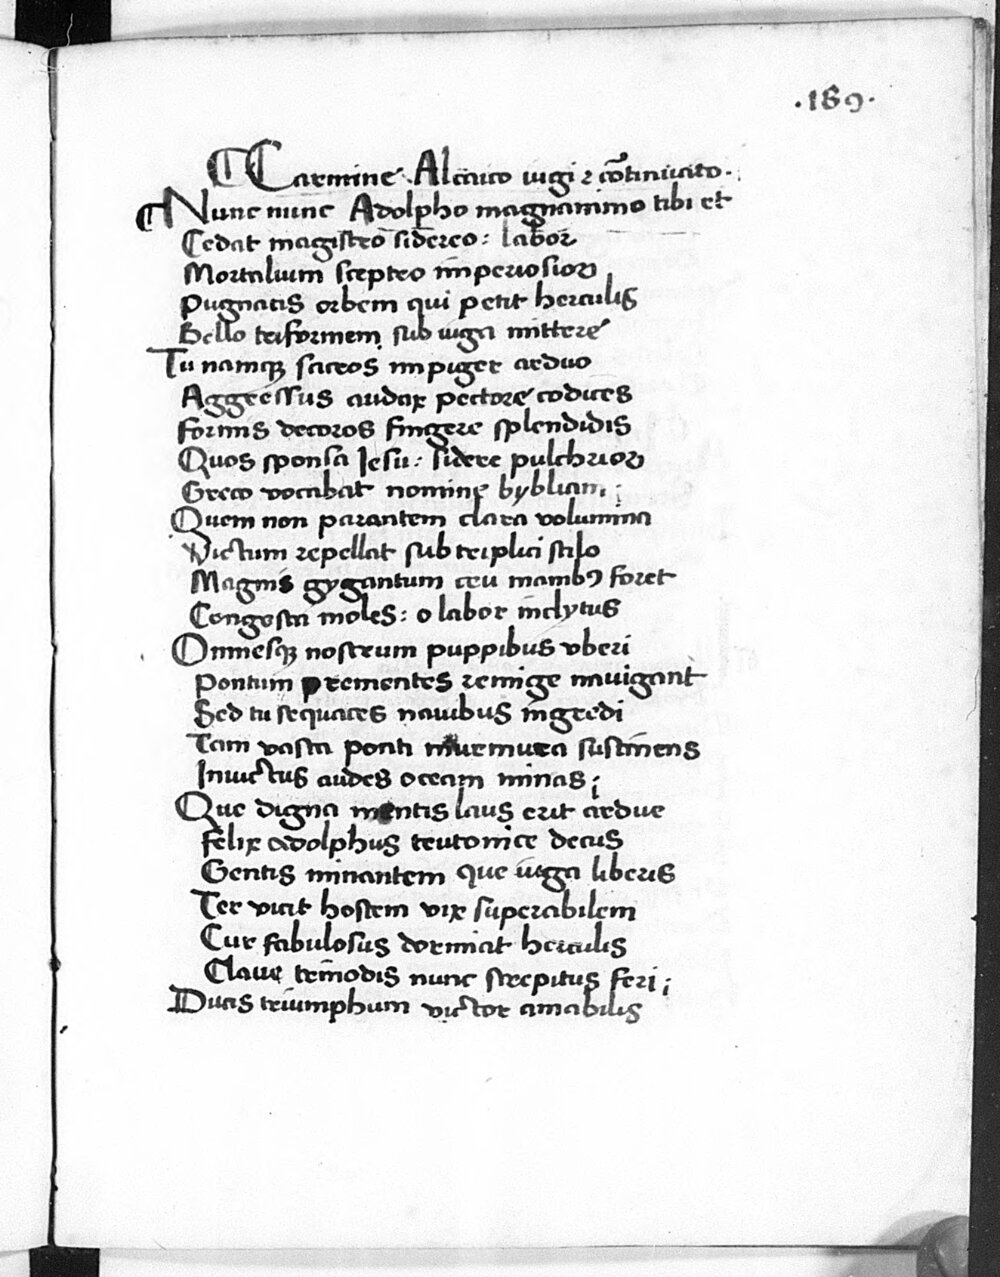 .189.
¶ Carmine Alcaico iugi ⁊ cōtinuato.
¶ Nunc nunc Adolpho magnanimo tibi et
Cedat magistro sidereo: labor
Mortalium sceptro imperiosior
Pugnacis orbem qui petit herculis
Bello triformem sub iuga mittere
Tu namqꝫ sacros impiger arduo
Aggressus audax pectore codices
Formis decoros fingere splendidis
Quos sponsa Jesu: sidere pulchrior
Greco vocabat nomine bybliam;
Quem non parantem clara volumina
Victum repellat sub triplici stilo
Magnis gygantum ceu manibꝰ foret
Congesta moles: o labor inclytus
Omnesqꝫ nostrum puppibus vberi
Pontum prementes remige nauigant
Sed tu sequaces nauibus ingredi
Tam vasta ponti murmura sustinens
Inuictus audes oceani minas;
Que digna mentis laus erit ardue
Felix adolphus teutonice decus
Gentis minantem que iuga liberis
Ter vicit hostem vix superabilem
Cur fabulosus dormiat herculis
Claue trinodis nunc strepitus feri;
Ducis triumphum victor amabilis